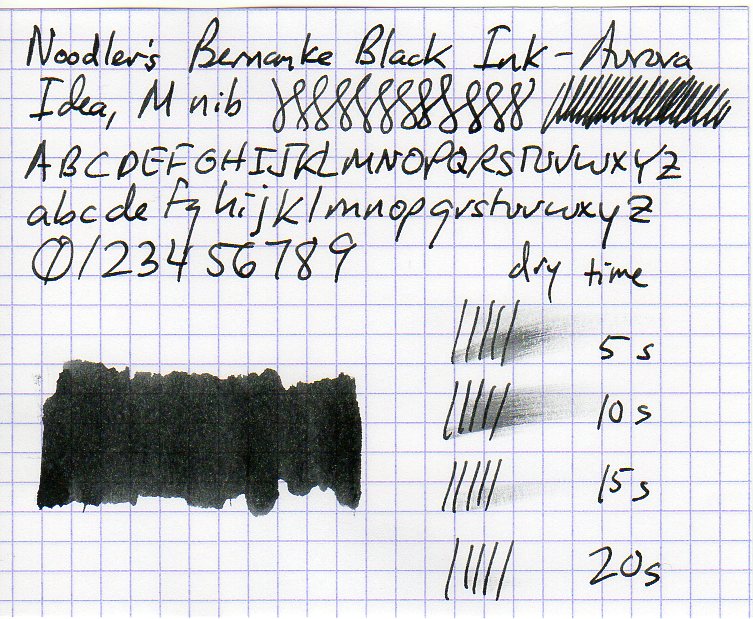 Noodler's Bernanke Black Ink - Aurora
Idea, M nib
ABCDEFGHIJKLMNOPQRSTUVWXYZ
abcdefghijklmnopqrstuvwxyz
0123456789
dry time
5s
10s
15s
20s